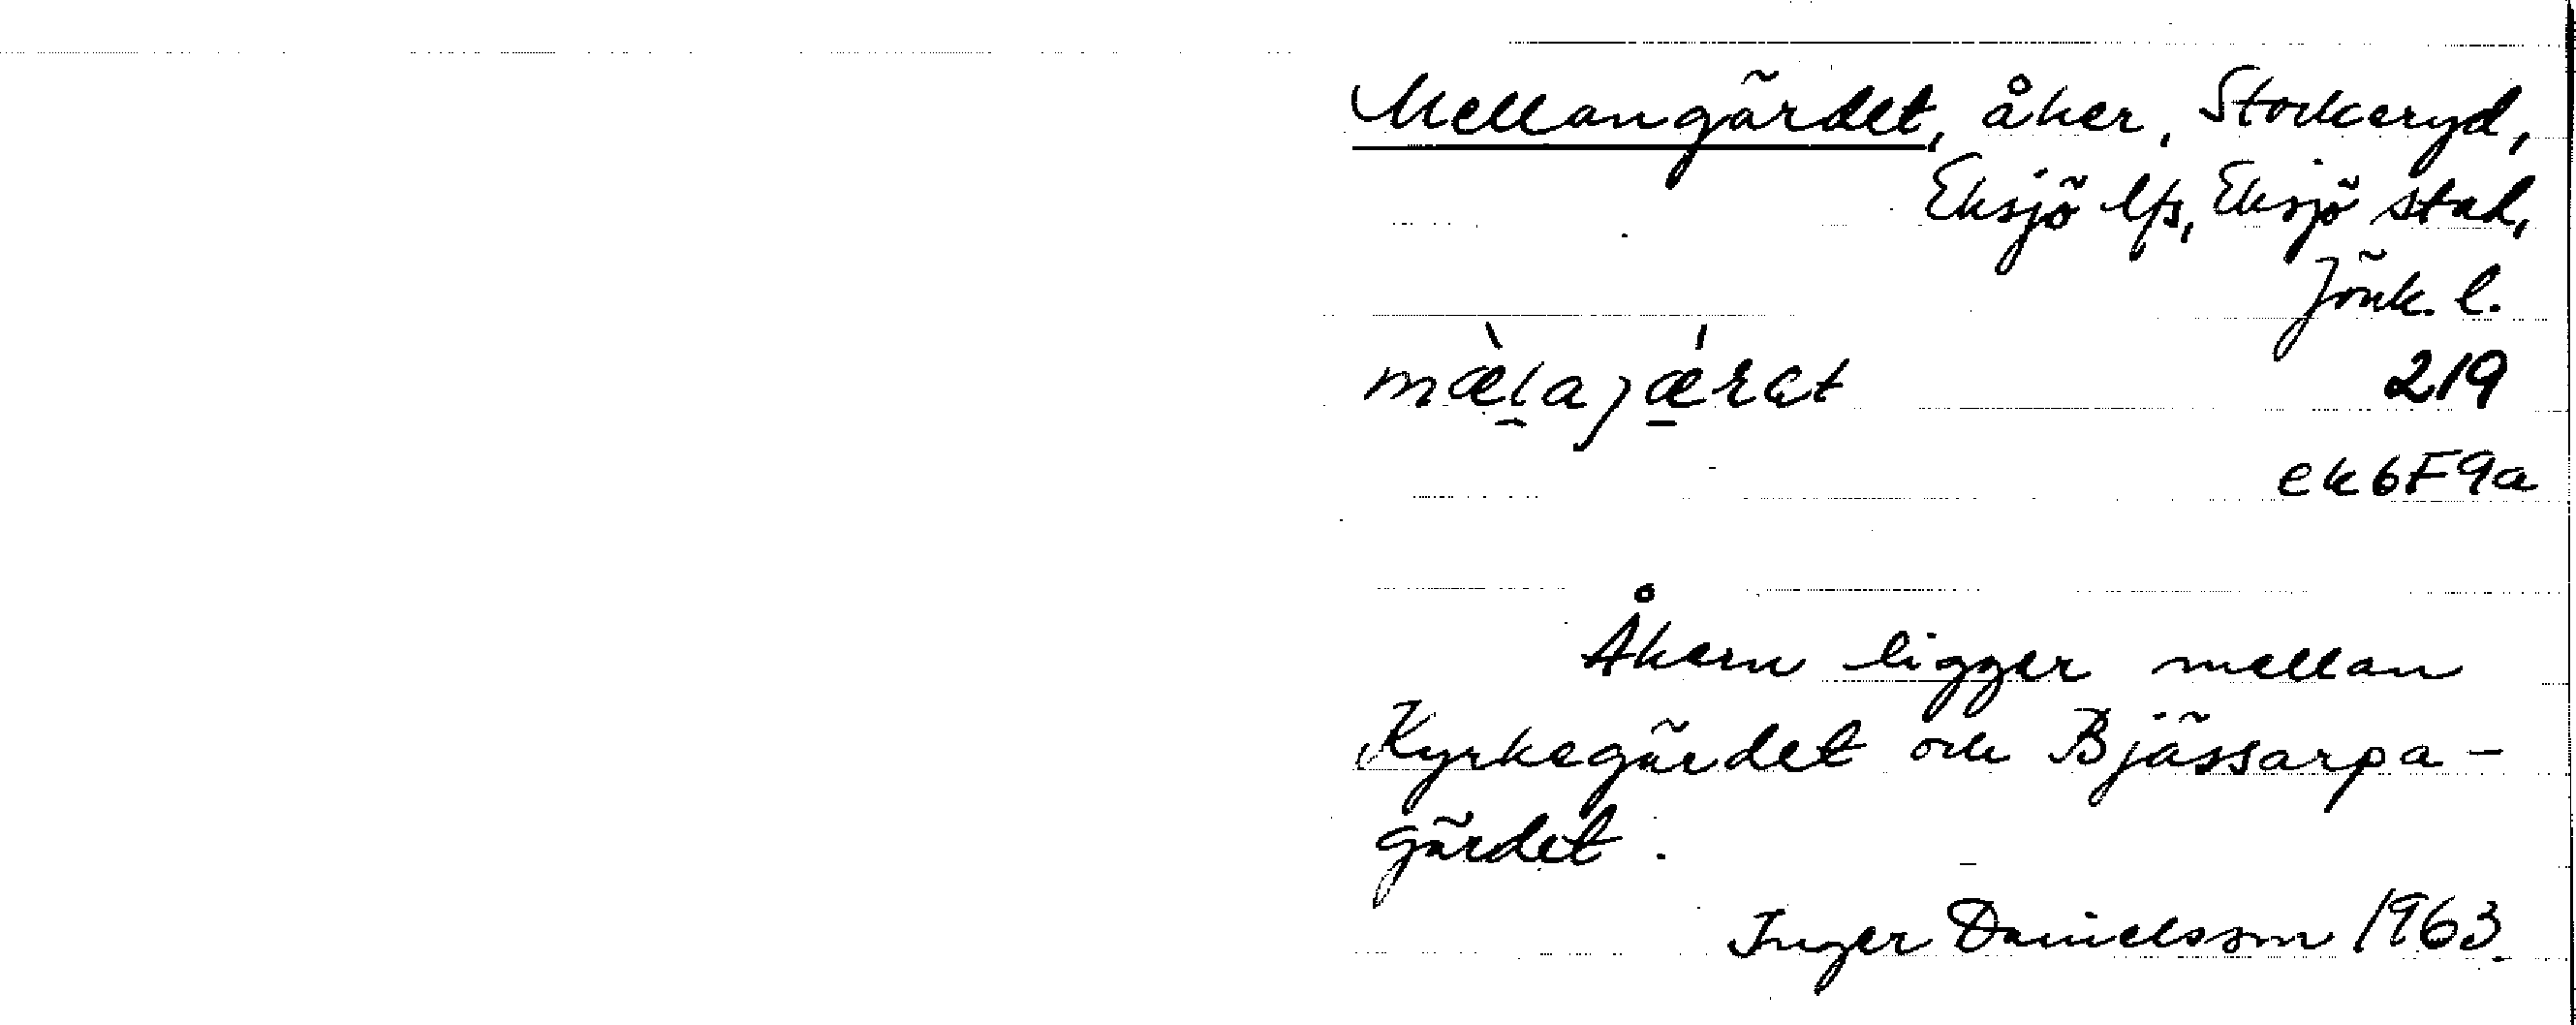 Mellangärdet, åker, Stockeryd,
Eksjö lfs, Eksjö stad,
Jönk. l.
mæ̀lajǽrət 219
ek6F9a
Åkern ligger mellan
Kyrkegärdet och Bjässarpa-
gärdet.
Inger Danielsson 1963.